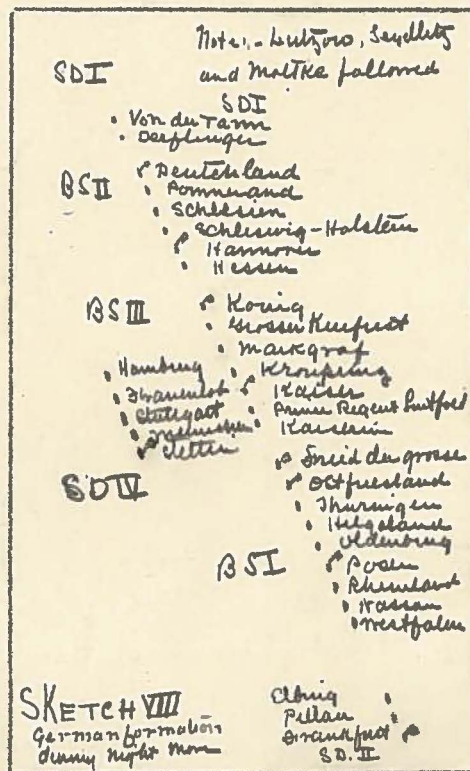 Note:- Lutzow, Seydlitz
and Moltke followed
SD I
SD I
Von der Tann
Derflinger
BS II
Deutchland
Pommerand
Schlesien
Schleswig-Holstein
Hannover
Hessen
BS III
Konig
Grosser Kurfurst
Markgraf
Kronprinz
Kaiser
Prince Regent Luitpold
Kaiserin
Hamburg
Frauenlob
Stuttgart
Munchen
Stettin
SD IV
Fried der grosse
Ostfriesland
Thuringen
Helgoland
Oldenburg
BS I
Posen
Rheinland
Nassau
Westfalen
SKETCH VIII
German formation
during Night Move
Elbing
Pillau
Frankfurt
SD. II